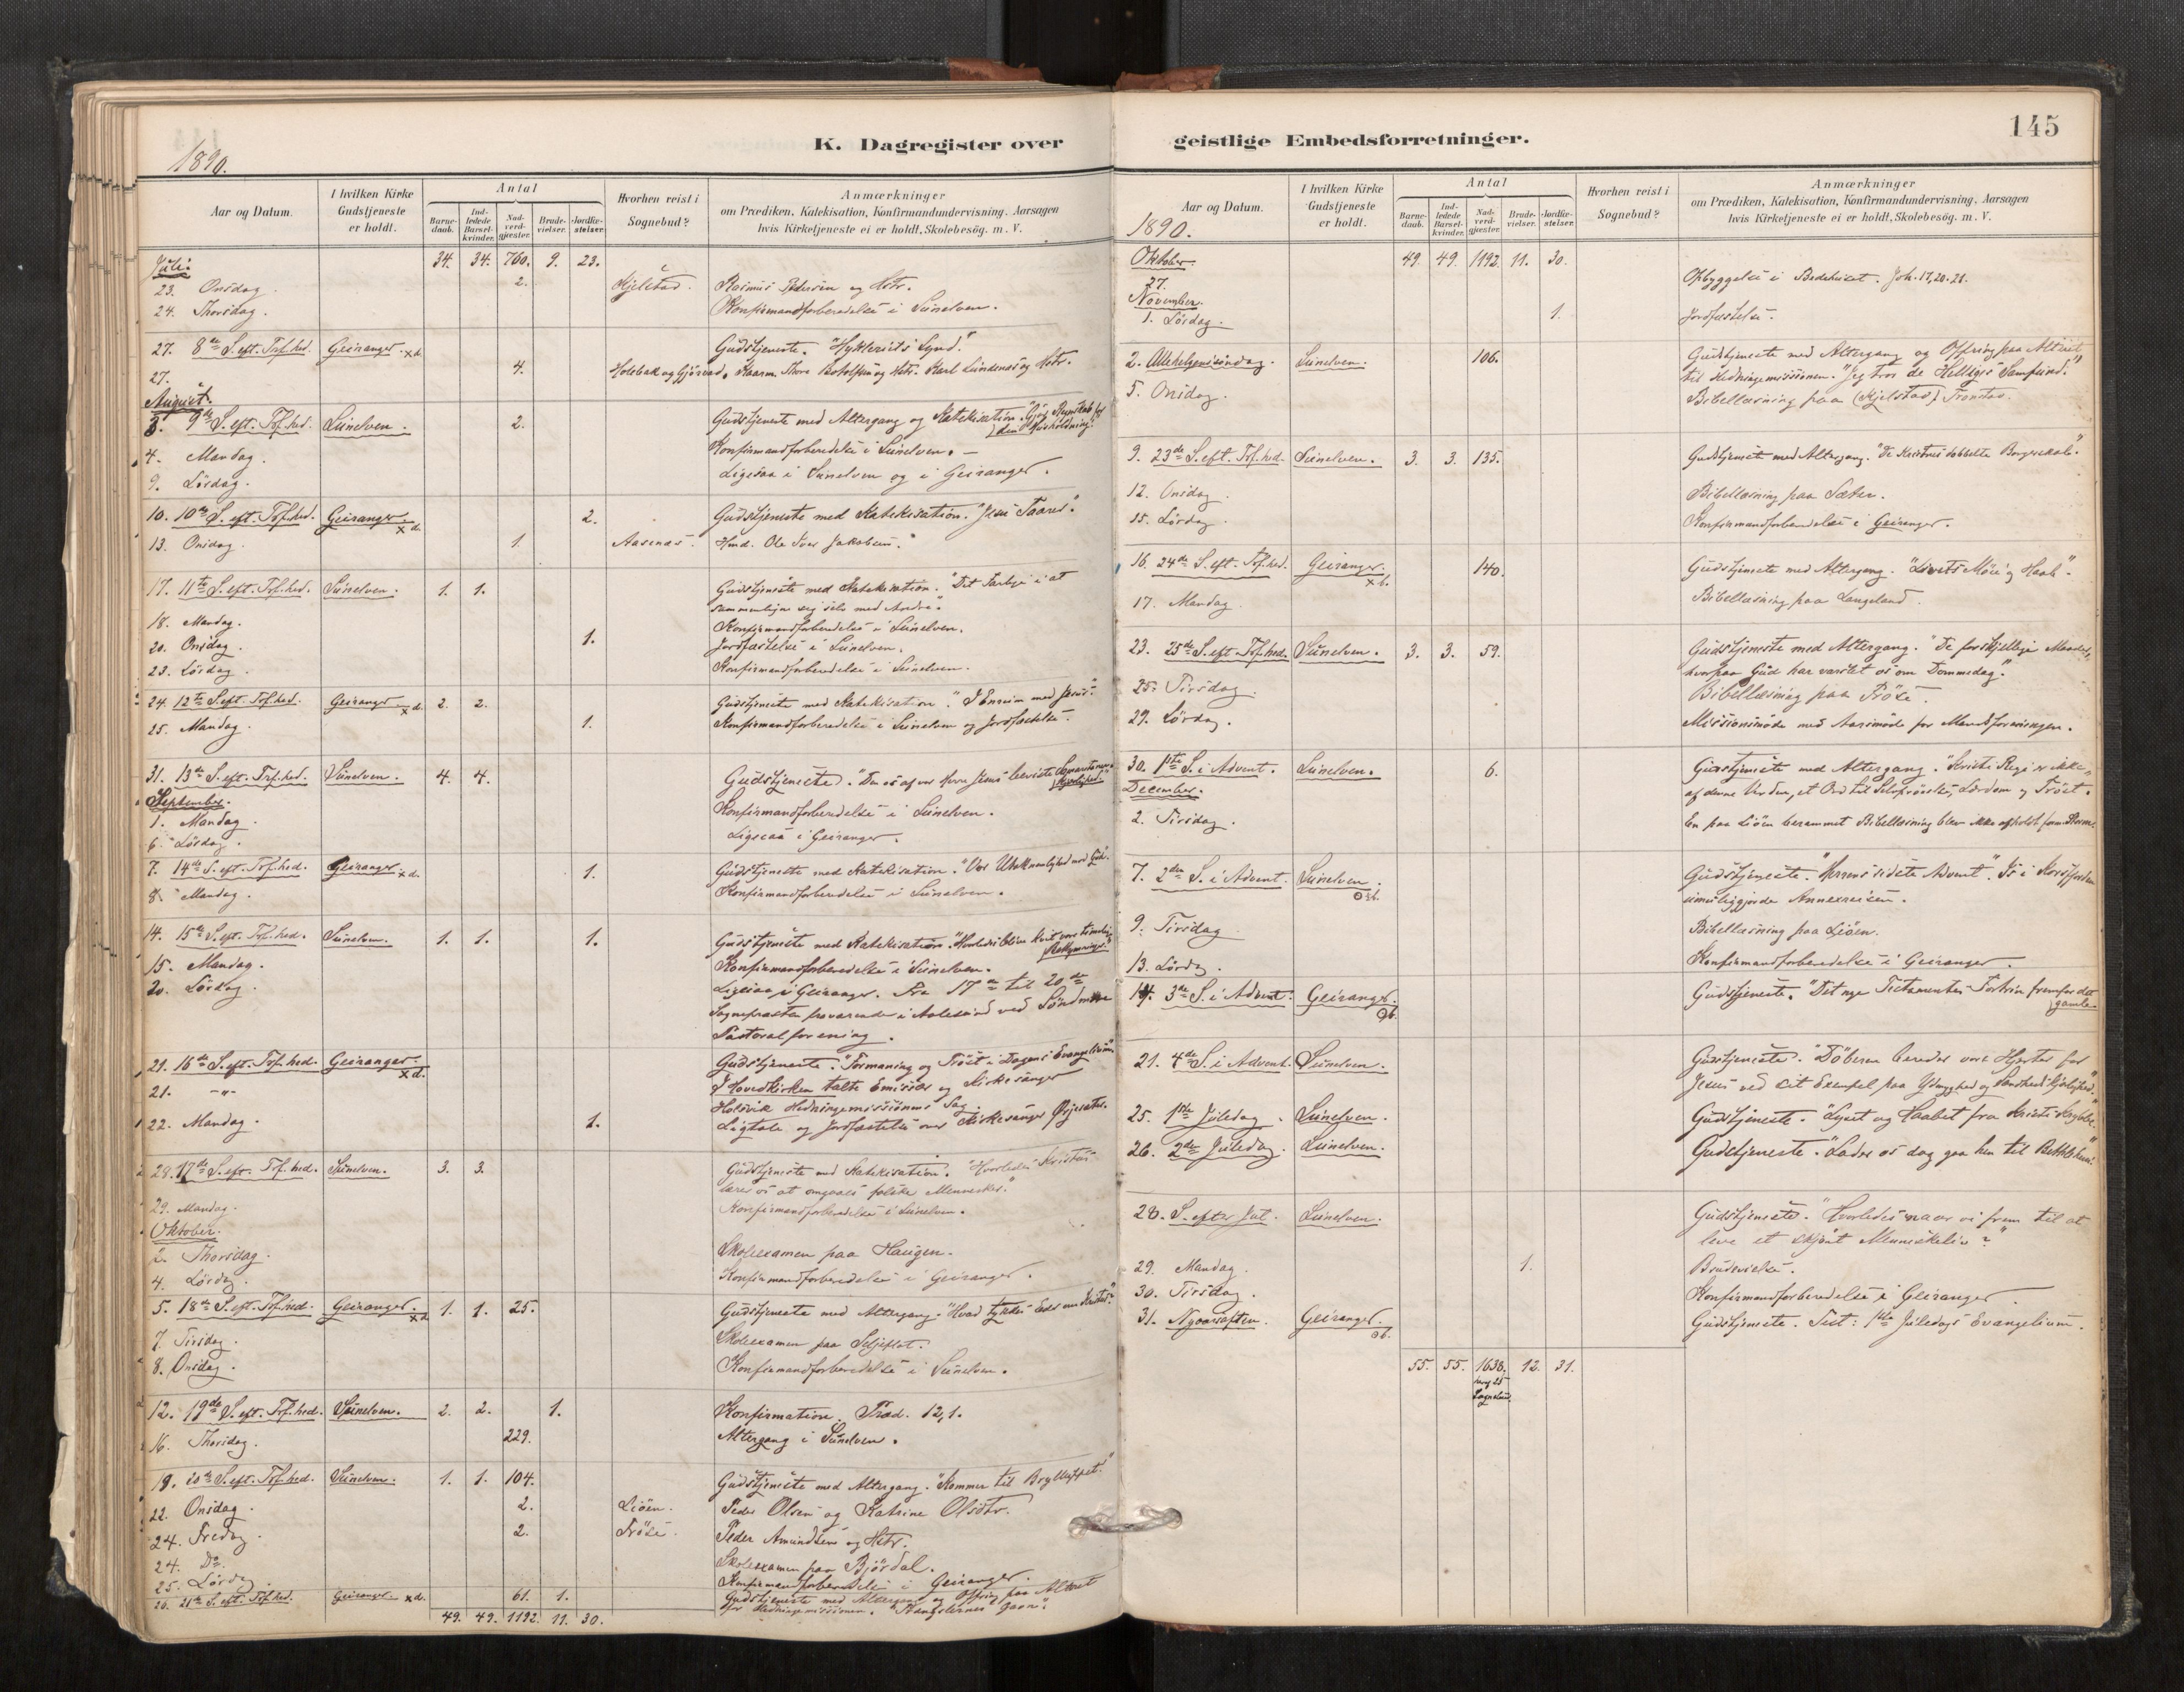 K. Dagregister over
1890.
Aar og Datum.
I hvilken Kirke Gudstjeneste er holdt.
Antal
Barne-daab.
Ind-ledede Barsel-kvinder.
Nad-verd-gjæster.
Brude-vielser.
Jordfæ-stelser.
Hvorhen reist i Sognebud?
Anmærkninger
om Prædiken, Katekisation, Konfirmandundervisning, Aarsagen
hvis Kirketjeneste ei er holdt, Skolebesøg. m. V.
Juli. 34. 34. 760. 9. 23.
23. Onsdag. 2. Hjelstad. Rasmus Pedersen og Hstr.
24. Thorsdag. Konfirmandforberedelse i Sunelven.
27. 8de S. eft. Tref.hed. Geiranger. x d. Gudstjeneste. "Hykleriets Synd."
27. 4. Holebak og Gjörvad.
August.
3. 9de S. eft. Tref.hed. Sunelven. 2. Gudstjeneste med Altergang og Katekisation. "Gjör Regnskab for
din Husholdning."
4. Mandag. Konfirmandforberedelse i Sunelven. -
9. Lördag. Ligesaa i Sunelven og i Geiranger.
10. 10de S. eft. Tref.hed. Geiranger. x d. 2. Gudstjeneste med Katekisation. "Jesu Taarer."
13. Onsdag. 1. Aasenæs. Hmd. Ole Iver Jakobsen.
17. 11te S. eft. Tref.hed. Sunelven. 1. 1. Gudstjeneste med Katekisation. "Det Farlige i at
sammenligne sig selv med Andre."
18. Mandag. Konfirmandforberedelse i Sunelven.
20. Onsdag. 1. Jordfæstelse i Sunelven.
23. Lördag. Konfirmandforberedelse i Sunelven.
24. 12te S. eft. Tref.hed. Geiranger x d. 2. 2. Gudstjeneste med Katekisation. "I Enrum med Jesus."
25. Mandag. 1. Konfirmandforberedelse i Sunelven og Jordfæstelse.
31. 13de S. eft. Tref.hed. Sunelven. 4. 4. Gudstjeneste. "Den os af vor Herre Jesus beviste Samaritaner
Kjærlighed."
September.
1. Mandag. Konfirmandforberedelse i Sunelven.
6. Lördag. Ligesaa i Geiranger.
7. 14de S. eft. Tref.hed. Geiranger x d. 1. Gudstjeneste med Katekisation. "Vor Utaknemlighed mod Gud."
8. Mandag. Konfirmandforberedelse i Sunelven.
14. 15de S. eft. Tref.hed. Sunelven. 1. 1. 1. Gudstjeneste med Katekisation. "Hvorledes blive kvit vore timelige
Bekymringer."
15. Mandag. Konfirmandforberedelse i Sunelven.
20. Lördag. Ligesaa i Geiranger. Fra 17de til 20de
Sognepresten fraværende i Aalesund ved Söndmöre
Pastoralforening.
21. 16de S. eft. Tref.hed. Geiranger. x d. Gudstjeneste. "Formaning og Tröst i Dagens Evangelium."
21. -"- I Hovedkirken talte Emissær og Kirkesanger
Holsvik Hedningemissionens Sag.
22. Mandag. 1. Ligtale og Jordfæstelse over Kirkesanger
28. 17de S. eft. Tref.hed. Sunelven. 3. 3. Gudstjeneste med Katekisation. "Hvorledes Kristus
lærer os at omgaaes falske Mennesker."
29. Mandag. Konfirmandforberedelse i Sunelven.
Oktober.
2. Thorsdag. Skoleexamen paa Haugen.
4. Lördag. Konfirmandforberedelse i Geiranger.
5. 18de S. eft. Tref.hed. Geiranger. x d 1. 1. 25. Gudstjeneste med Altergang. "Hvad tykkes Eder om Kristus?"
7. Tirsdag. Skoleexamen paa Seljeflot.
8. Onsdag. Konfirmandforberedelse i Sunelven.
12. 19de S. eft. Tref.hed. Sunelven. 2. 2. 1. Konfirmation. Præd. 12,1.
16. Thorsdag. 229. Altergang i Sunelven.
19. 20de S. eft. Tref.hed. Sunelven. 1. 1. 104. Gudstjeneste med Altergang. "Kommer til Bryllupet."
22. Onsdag. 2. Liöen. Peder Olsen og Katrine Olsdtr.
24. Fredag. 2. Fröse. Peder Amundsen og Hstr.
24. Do. Skoleexamen paa Björdal.
25. Lördag. Konfirmandforberedelse i Geiranger.
26. 21de S. eft. Tref.hed. Geiranger x d. 61. 1. Gudstjeneste med Altergang og Offring paa Alteret
for Hedningemissionen.
49. 49. 1192. 11. 30.
geistlige Embedsforretninger.
145
Aar og Datum.
1890.
I hvilken Kirke Gudstjeneste er holdt.
Antal
Barne-daab.
Ind-ledede Barsel-kvinder.
Nad-verd-gjæster.
Brude-vielser.
Jordfæ-stelser.
Hvorhen reist i Sognebud?
Anmærkninger
om Prædiken, Katekisation, Konfirmandundervisning, Aarsagen
hvis Kirketjeneste ei er holdt, Skolebesög. m. V.
Oktober. 49. 49. 1192. 11. 30.
27. Opbyggelse i Bedehuset. Joh. 17,20-21.
November.
1. Lördag. 1. Jordfæstelse.
2. Allehelgenssöndag. Sunelven. 106. Gudstjeneste med Altergang og Offring paa Alteret
til Hedningemissionen. "Jeg tror de Helliges Samfund."
5. Onsdag. Bibellæsning paa (Hjelstad) Tronstad.
9. 23de S. eft. Tref.hed. Sunelven. 3. 3. 135. Gudstjeneste med Altergang. "De Kristnes dobbelte Borgerskab."
12. Onsdag. Bibellæsning paa Sæter.
15. Lördag. Konfirmandforberedelse i Geiranger.
16. 24de S. eft. Tref.hed. Geiranger. x b. 140. Gudstjeneste med Altergang. "Livets Möie og Haab."
17. Mandag. Bibellæsning paa Langeland.
23. 25de S. eft. Tref.hed. Sunelven. 3. 3. 59. Gudstjeneste med Altergang. "De forskjellige Maader,
hvorpaa Gud har varslet os om Dommedag."
25. Tirsdag. Bibellæsning paa Fröse.
29. Lördag. Missionsmöde med Aarsmöde for Mandsforeningen.
30. 1ste S. i Advent. Sunelven. 6. Gudstjeneste med Altergang. "Kristi Rige er ikke
af denne Verden, et Ord til Selvprövelse, Lærdom og Tröst."
December.
2. Tirsdag. En paa Liöen berammet Bibellæsning blev ikke afholdt form. Storm.
7. 2den S. i Advent. Sunelven. Gudstjeneste. "Herrens sidste Advent." Is i
umuliggjorde Annexreisen.
9. Tirsdag. Bibellæsning paa Liöen.
13. Lördag. Konfirmandforberedelse i Geiranger.
14. 3de S. i Advent. Geiranger. Gudstjeneste. "Det nye Testamentes Fortrin fremfor det
gamle."
21. 4de S. i Advent. Sunelven. Gudstjeneste. "Döberen bereder vore Hjerter for
Jesus ved sit Exempel paa Ydmyghed og Sandhedskjærlighed."
25. 1ste Juledag. Sunelven. Gudstjeneste. "Lyset og Haabet fra Kristi Krybbe."
26. 2de Juledag. Sunelven. Gudstjeneste. "Lader os dog gaa hen til Bethlehem."
28. S. efter Jul. Sunelven. Gudstjeneste. "Hvorledes naar vi frem til at
leve et skjönt Menneskeliv?"
29. Mandag. 1. Brudevielse.
30. Tirsdag. Konfirmandforberedelse i Geiranger.
31. Nyaarsaften. Geiranger. Gudstjeneste. Text: 1ste Juledags Evangelium.
55. 55. 1638. 12. 31.